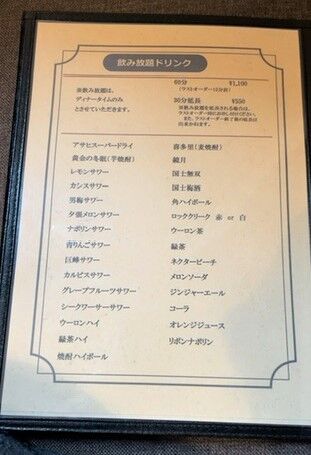 飲み放題ドリンク
※飲み放題は、
ディナータイムのみ
とさせていただきます。
60分 ¥1,100
(ラストオーダー15分前)
30分延長 ¥550
※飲み放題を延長される場合は、
ラストオーダー時にお申し付けください。
また、ラストオーダー終了後の延長は
出来かねます。
アサヒスーパードライ
黄金の冬眠(芋焼酎)
レモンサワー
カシスサワー
男梅サワー
夕張メロンサワー
ナポリンサワー
青りんごサワー
巨峰サワー
カルピスサワー
グレープフルーツサワー
シークワーサーサワー
ウーロンハイ
緑茶ハイ
焼酎ハイボール
喜多里(麦焼酎)
鏡月
国士無双
国士梅酒
角ハイボール
ロッククリーク 赤 or 白
ウーロン茶
緑茶
ネクターピーチ
メロンソーダ
ジンジャーエール
コーラ
オレンジジュース
リボンナポリン